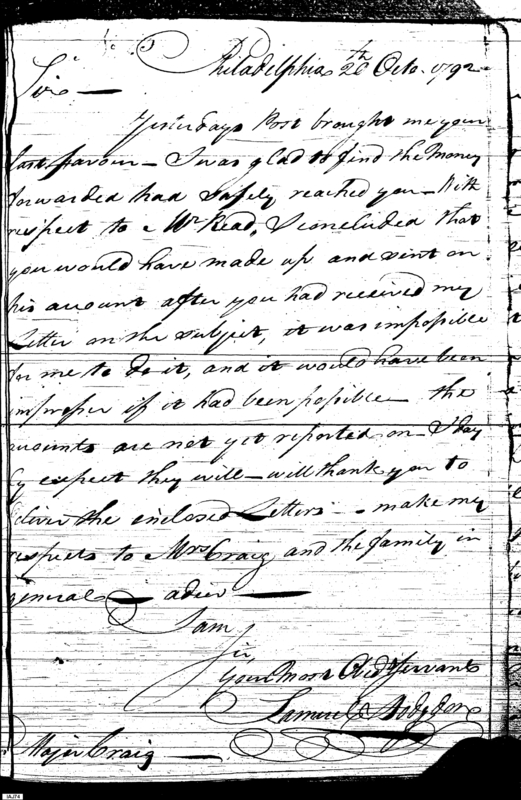 Philadelphia 26th Octo. 1792
Sir —
Yesterdays Post brought me your
last favour — I was glad to find the Money
forwarded had safely reached you — With
respect to Mr Read, I concluded that
you would have made up and sent on
his account after you had received my
Letter on the subject, it was impossible
for me to do it, and it would have been
improper if it had been possible — the
accounts are not yet reported on — I day
ly expect they will — will thank you to
deliver the enclosed Letters — make my
respects to Mrs Craig and the family in
general — adieu —
I am
Sir,
Your Most Obed Servant
Samuel Hodgdon
Major Craig —
IAJ74